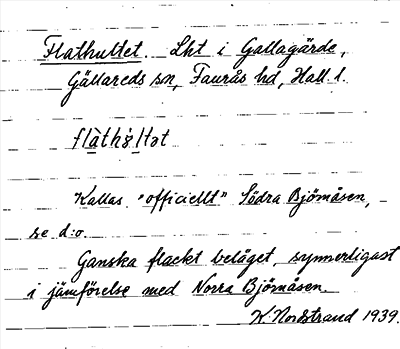 Flathultet. Lht i Gallagärde,
Gällareds sn, Faurås hd, Hall. l.
flàthùltət
Kallas "officiellt" Södra Björnåsen,
se d:o.
Ganska flackt beläget, synnerligast
i jämförelse med Norra Björnåsen.
K. Nordstrand 1939.